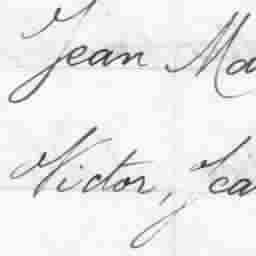 Jean Ma
Victor, Jea